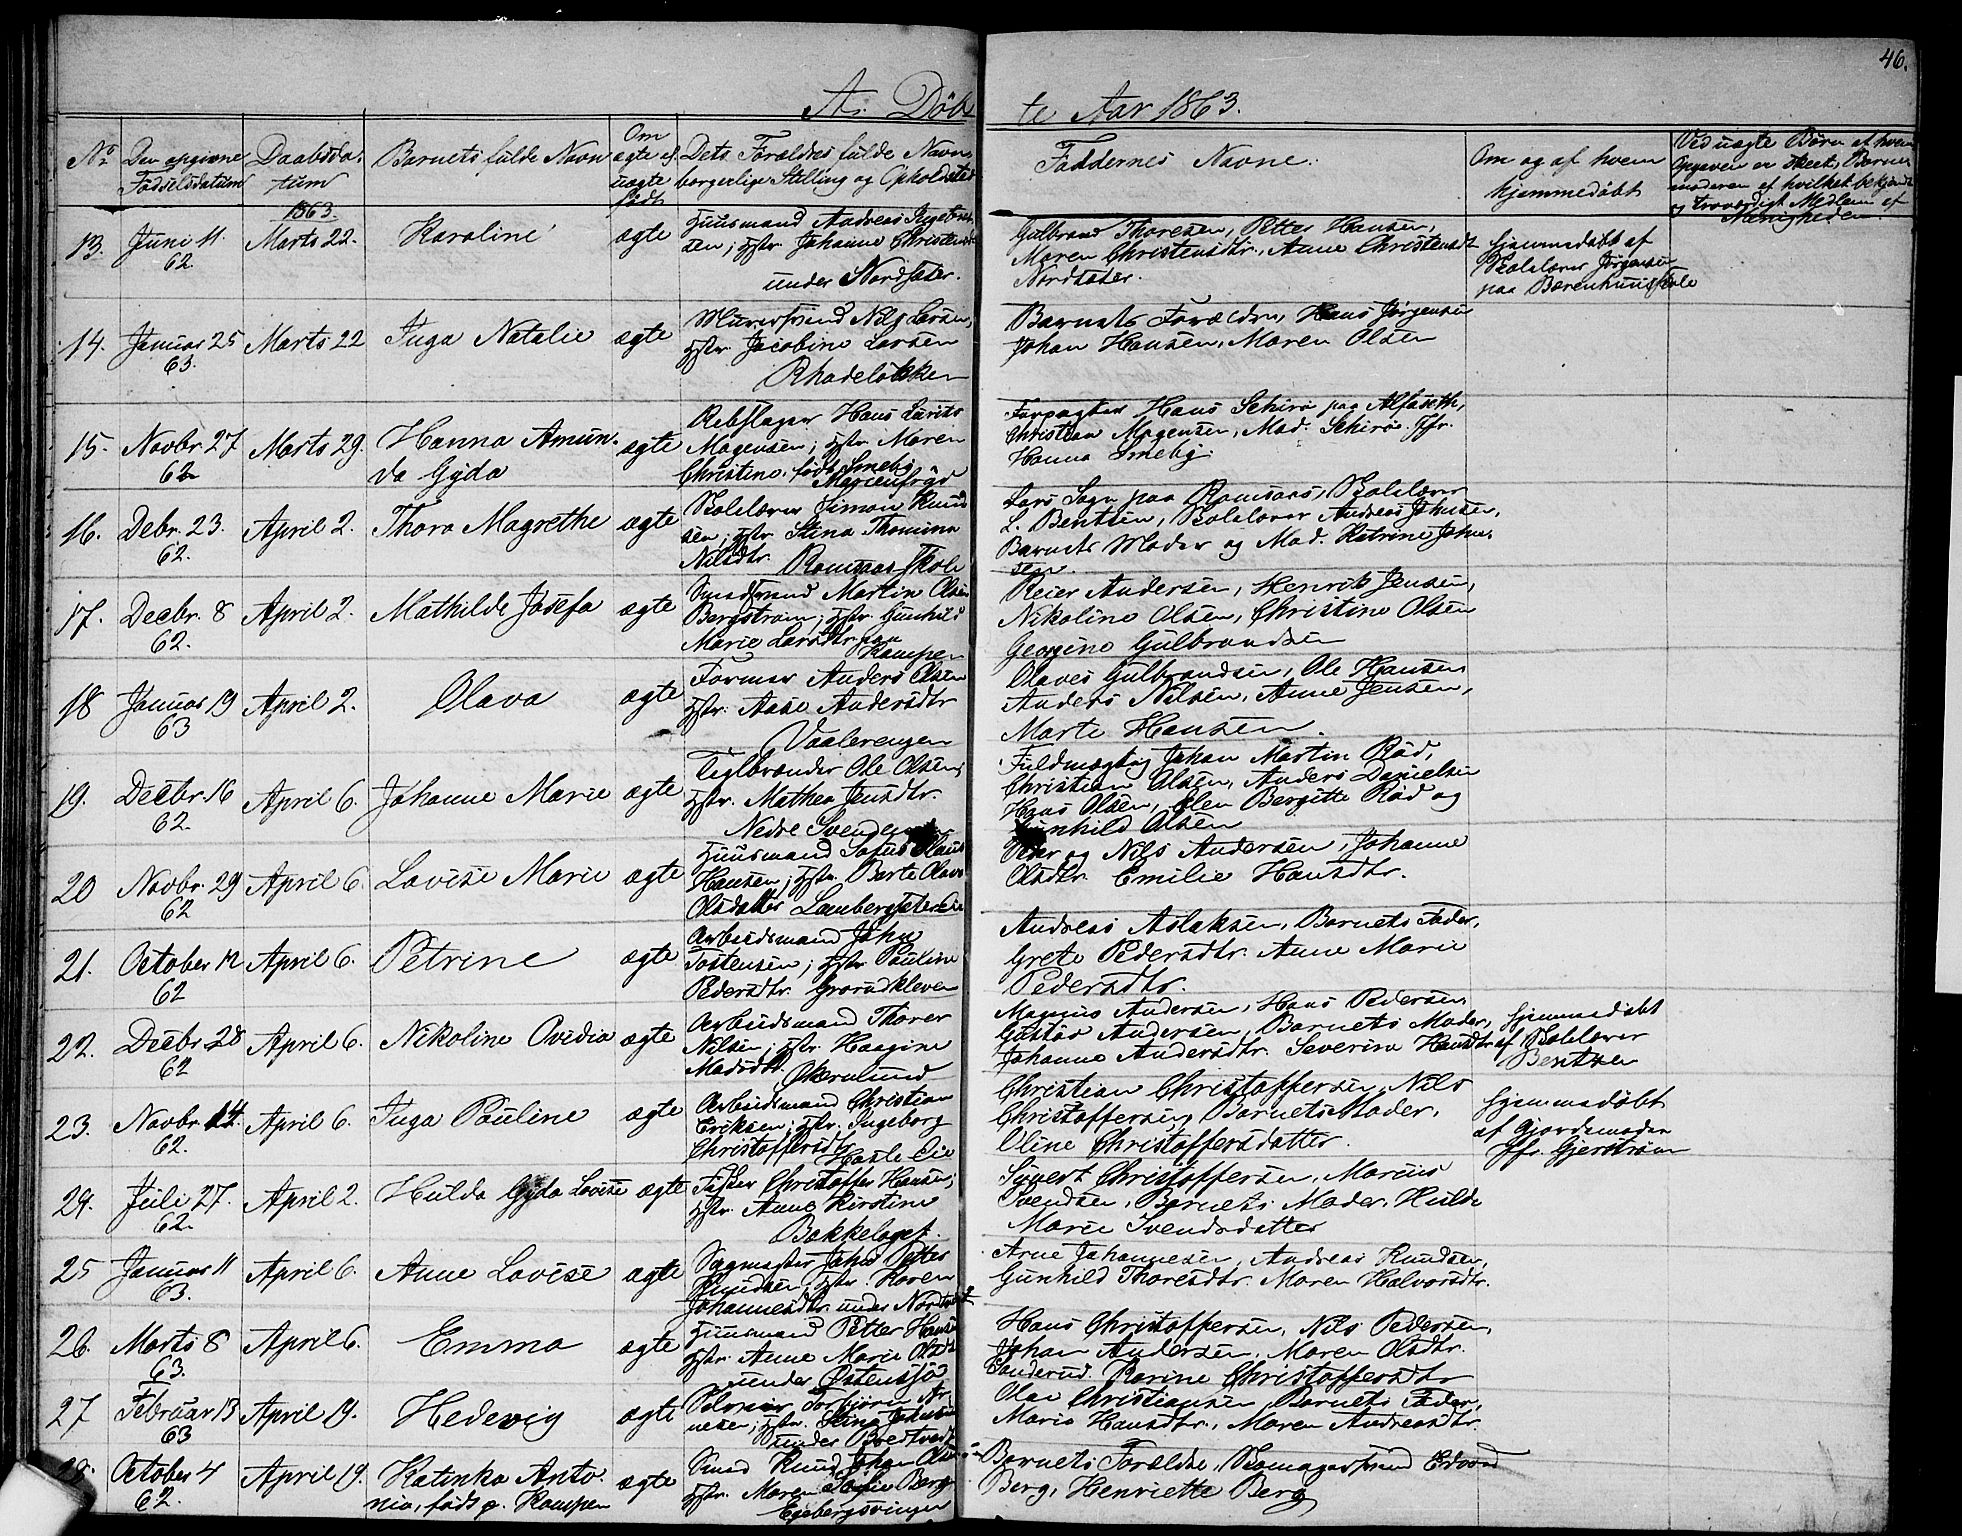 46.
A. Döbte Aar 1863.
No Den opgivne Fødselsdatum Daabsdatum Barnets fulde Navn Om ægte el uægte født Dets Forældres fulde Navn borgerlige Stilling og Opholdsted
Faddernes Navne. Om og af hvem hjemmedøbt Ved uægte Børn af hvem Opgaven er skeet, Barnemoderen el hvilket bekjendt og troværdigt Medlem af Menigheden.
1863.
13. Juni 11. 62. Marts 22. Karoline ægte Huusmand Andreas
sen; Hstr. Johanne
under Nordseter.
Gulbrand Thoresen, Petter Hansen,
Maren Christensdtr., Anne Christensdt
Nordseter.
hjemmedøbt af
Skolelærer Jørgensen
paa Bærenhuusskole
14. Januar 25 63. Marts 22 Inga Natalie ægte Murersvend Nils Larsen,
Hstr. Jacobine Larsen
Rhodeløkken
Barnets Forældre, Hans Jørgensen
Johan Hansen, Maren Olsen
15. Novbr. 27 62 Marts 29. Hanna Amunda Gyda ægte Rebslager Hans Lurits
Magensen; Hstr. Maren
Christine, født Smeby
Marienfryd
Forpagter Hans Schirø paa Alfaseth,
Christian Magensen, Mad. Schirøe. Jfr.
Hanna Smeby.
16. Debr. 23. 62. April 2. Thora Magrethe ægte Skolelærer Simon Knud
sen; Hstr. Stina Thomina
Nilsdtr. Romsaas Skole
Lars Sogn paa Romsaas, Skolelærer
L. Bentsen, Skolelærer Andreas Johnsen,
Barnets Moder og Mad. Katrine John-
sen.
17. Decbr. 8 62. April 2. Mathilde Josefa ægte Smedsvend Martin Olsen
Bergstrøm; Hstr. Gunhild
Marie Larsdtr. paa
Kampen
Reier Andersen, Henrik Jensen,
Nikoline Olsen, Christine Olsen
Georgine Gulbrandsen
18 Januar 19 63 April 2. Olava ægte Former Anders Olsen
Hstr. Aase Andersdtr
Vaalerengen
Olaves Gulbrandsen, Ole Hansen
Anders Nilsen, Anne Jensen,
Marte Hansen.
19. Decbr. 16 62. April 6. Johanne Marie ægte Teglbrænder Ole Olsen;
Hstr. Mathea Jensdtr.
Nedre
Fuldmægtig Johan Martin Röd,
Christian Olsen, Anders Danielsen
Hans Olsen, Elen Bergitte Röd og
Gunhild Olsen
20 Novbr. 29 62 April 6. Lovise Marie ægte Huusmand Sofus Olaus
Hansen; Hstr. Berte Olava
Olsdatter Lambergseter Eie
Peder og Nils Andersen, Johanne
Olsdtr. Emilie Hansdtr.
21. October 12 62 April 6. Petrine ægte Arbeidsmand John
Tostensen; Hstr. Pauline
Pedersdtr. Grorudkleven
Andreas Aslaksen, Barnets Fader,
Grete Pedersdtr. Anne Marie
Pedersdtr.
22. Decbr. 28 62 April 6. Nikoline Ovidia ægte Arbeidsmand Thorer
Nilsen; Hstr. Haagine
Madsdtr. Økernlund
Magnus Andersen, Hans Pedersen
Gustav Andersen, Barnets Moder,
Johanne Andersdtr. Severine Hansdtr
hjemmedøbt
af Skolelærer
Bentsen
23. Novbr. 14. 62. April 6. Inga Pauline ægte Arbeidsmand Christian
Eriksen; Hstr. Ingeborg
Christoffersdtr
Hasle Eie
Christian Christoffersen, Nils
Christoffersen, Barnets Moder,
Oline Christoffersdatter.
hjemmedøbt
af Gjordemoder
Jfr. Gjerstrøm
24. Juli 27. 62. April 2. Hulda Gyda Lovise ægte Fisker Christoffer Hansen;
Hstr. Anne Kirstine
Bækkelaget.
Syvert Christoffersen, Marcus
Svendsen, Barnets Moder, Hulda
Marie Svendsdatter
25 Januar 11 63. April 6. Anne Lovise ægte Sagmester John Petter
Knudsen, Hstr. Karen
Johannesdtr. under Nordtvedt
Arne Johannesen, Andreas Knudsen,
Gunhild Thoresdtr. Maren Halvorsdtr.
26. Marts 8 63. April 6. Emma ægte Huusmand Petter Hansen
Hstr. Anne Marie Olsdt
under Østensjø
Hans Christoffersen, Nils Pedersen,
Johan Andersen, Maren Olsdtr.
Sanderud. Karine Christoffersdtr
27 Februar 13 63 April 19. Hedevig ægte Torbjørn Ar-
nesen; Hstr. Stina
under Bredtvedt
Olav Christiansen, Barnets Fader,
Marie Hansdtr., Maren Andreasdtr.
28. October 4 62. April 19. Katinka Anto-
nia, født p. Kampen ægte Smed Knud Johan
Hstr. Maren Sofie Berg
Egebergsvingen
Barnets Forældre, Skomagersvend Edvard
Berg, Henriette Berg